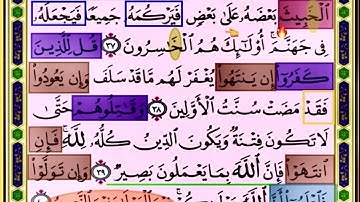 ٱلْخَبِيثَ بَعْضَهُۥ عَلَىٰ بَعْضٍ فَيَرْكُمَهُۥ جَمِيعًا فَيَجْعَلَهُۥ
فِى جَهَنَّمَ ۚ أُو۟لَٰٓئِكَ هُمُ ٱلْخَٰسِرُونَ ٣٧ قُل لِّلَّذِينَ
كَفَرُوٓا۟ إِن يَنتَهُوا۟ يُغْفَرْ لَهُم مَّا قَدْ سَلَفَ وَإِن يَعُودُوا۟
فَقَدْ مَضَتْ سُنَّتُ ٱلْأَوَّلِينَ ٣٨ وَقَٰتِلُوهُمْ حَتَّىٰ
لَا تَكُونَ فِتْنَةٌ وَيَكُونَ ٱلدِّينُ كُلُّهُۥ لِلَّهِ ۚ فَإِنِ
ٱنتَهَوْا۟ فَإِنَّ ٱللَّهَ بِمَا يَعْمَلُونَ بَصِيرٌ ٣٩ وَإِن تَوَلَّوْا۟